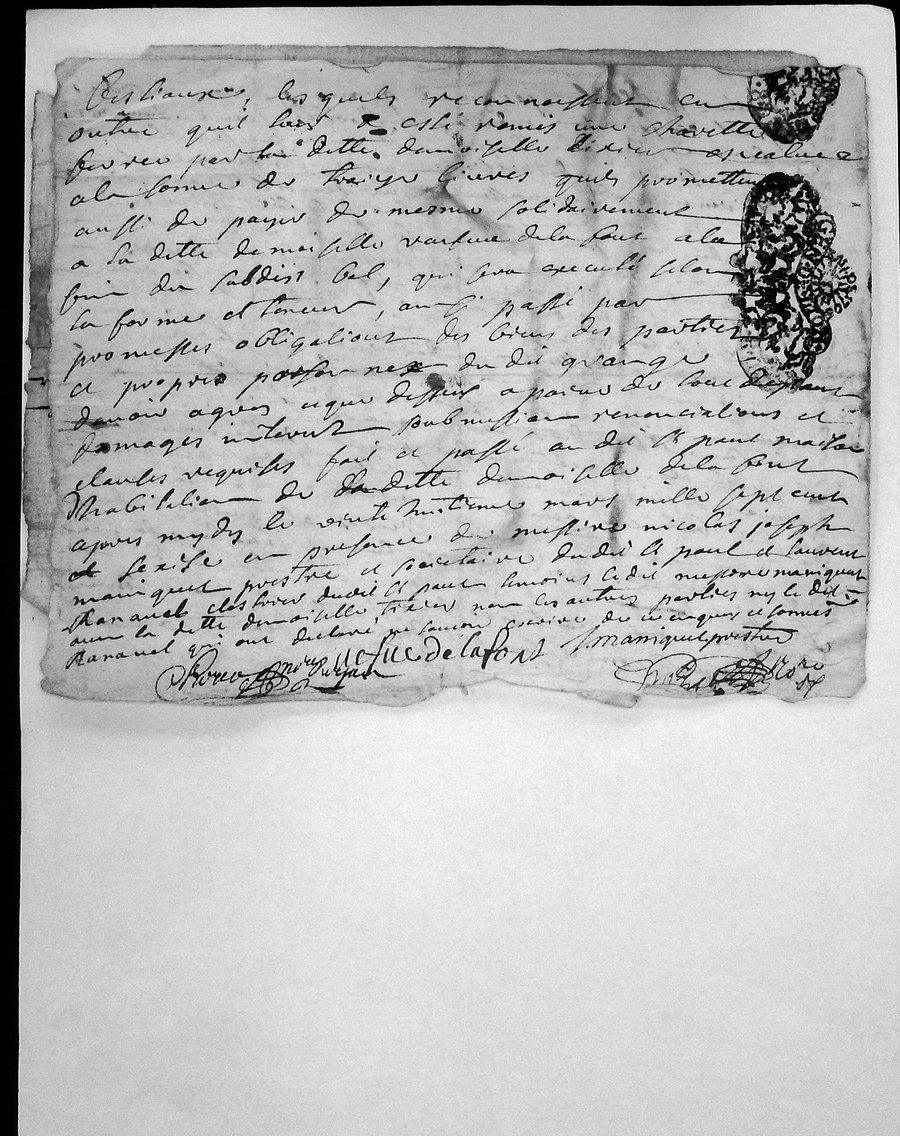 bestiaux, lesquels reconnoissent en
outre quil leur a esté remis une charette
ferree par la ditte damoiselle Tixier evaluee
a la somme de traize livres quils promettent
aussi de payer de mesme solidairement
a la ditte demoiselle vesfue de la font a la
fin du subdist bal, qui sera executé selon
sa forme et teneur, ainsi passé par
promesses obligations des biens des parties
et propres personnes du dit grange
a peine de tous despans
domages interest submission renonciations et
clauses requises fait et passé au dit St paul maison
d'habitation de la ditte damoiselle de la font
apres mydy le vintehuitieme mars mille sept cent
et sexise en presence de messire nicolas joseph
maniquet prestre et secretaire dudit St paul et laurent
Ranauel clostrier dudit St paul temoins ledit messire maniquet
avec la ditte demoiselle Tixier non les autres parties ny le dit
Ranauel qui ont declaré ne scavoir escrire de ce enquis et sommés
vesfue de lafont maniquet prestre